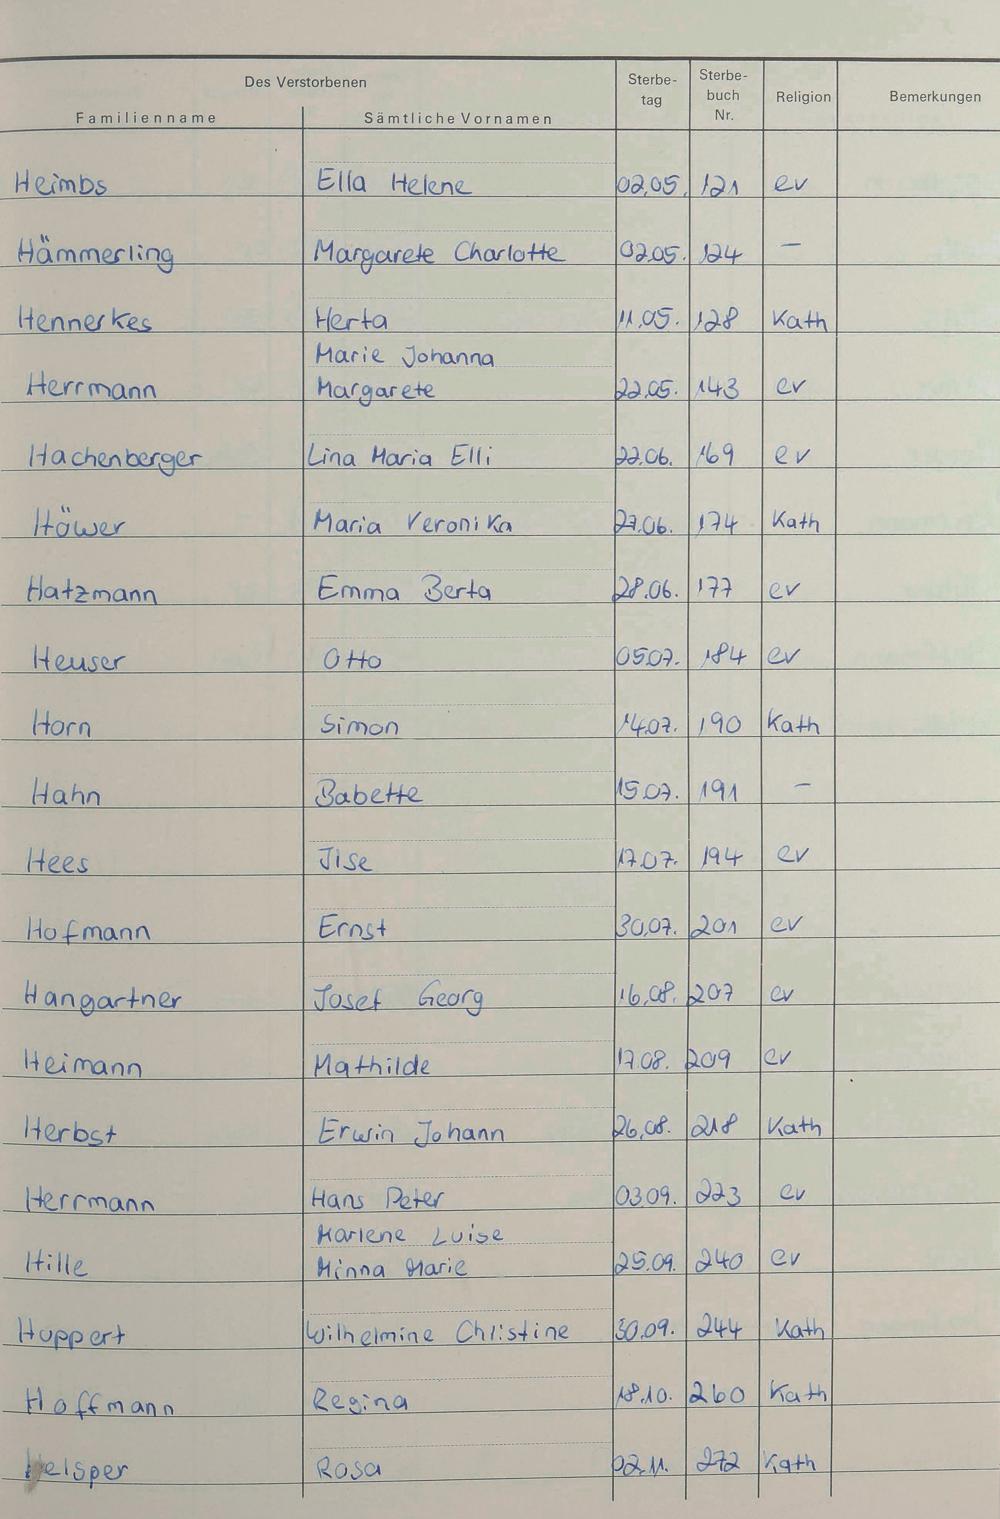 Des Verstorbenen
Familienname Sämtliche Vornamen Sterbe-tag Sterbe-buch Nr. Religion Bemerkungen
Heimbs Ella Helene 02.05. 121 ev
Hämmerling Margarete Charlotte 02.05. 124 —
Hennerkes Herta 11.05. 128 Kath
Marie Johanna
Herrmann Margarete 22.05. 143 ev
Hachenberger Lina Maria Elli 22.06. 169 ev
Höwer Maria Veronika 27.06. 174 Kath
Hatzmann Emma Berta 28.06. 177 ev
Heuser Otto 05.07. 184 ev
Horn Simon 14.07. 190 Kath
Hahn Babette 15.07. 191 —
Hees Ilse 17.07. 194 ev
Hofmann Ernst 30.07. 201 ev
Hangartner Josef Georg 16.08. 207 ev
Heimann Mathilde 17.08. 209 ev
Herbst Erwin Johann 26.08. 218 Kath
Herrmann Hans Peter 03.09. 223 ev
Marlene Luise
Hille Minna Marie 25.09. 240 ev
Huppert Wilhelmine Christine 30.09. 244 Kath
Hoffmann Regina 18.10. 260 Kath
Helsper Rosa 02.11. 272 Kath